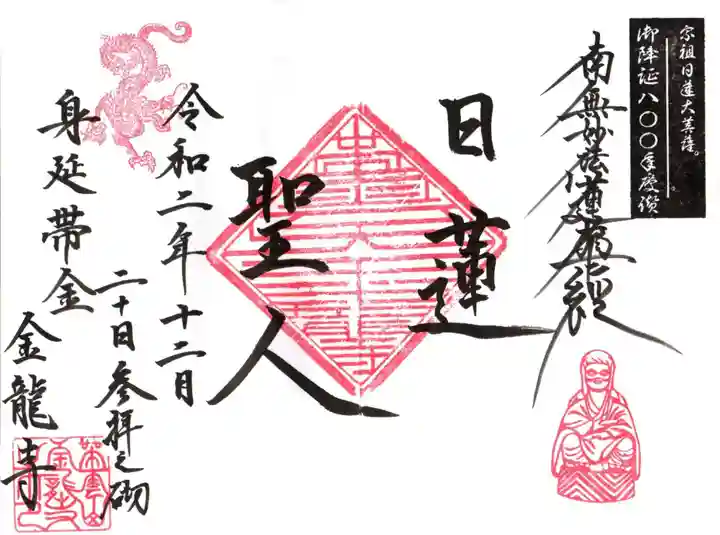 宗祖日蓮大菩薩。
御降誕八〇〇年慶讃。
南無妙法蓮華経
日蓮
聖人
令和二年十二月
二十日参拝之砌
身延帯金
金龍寺